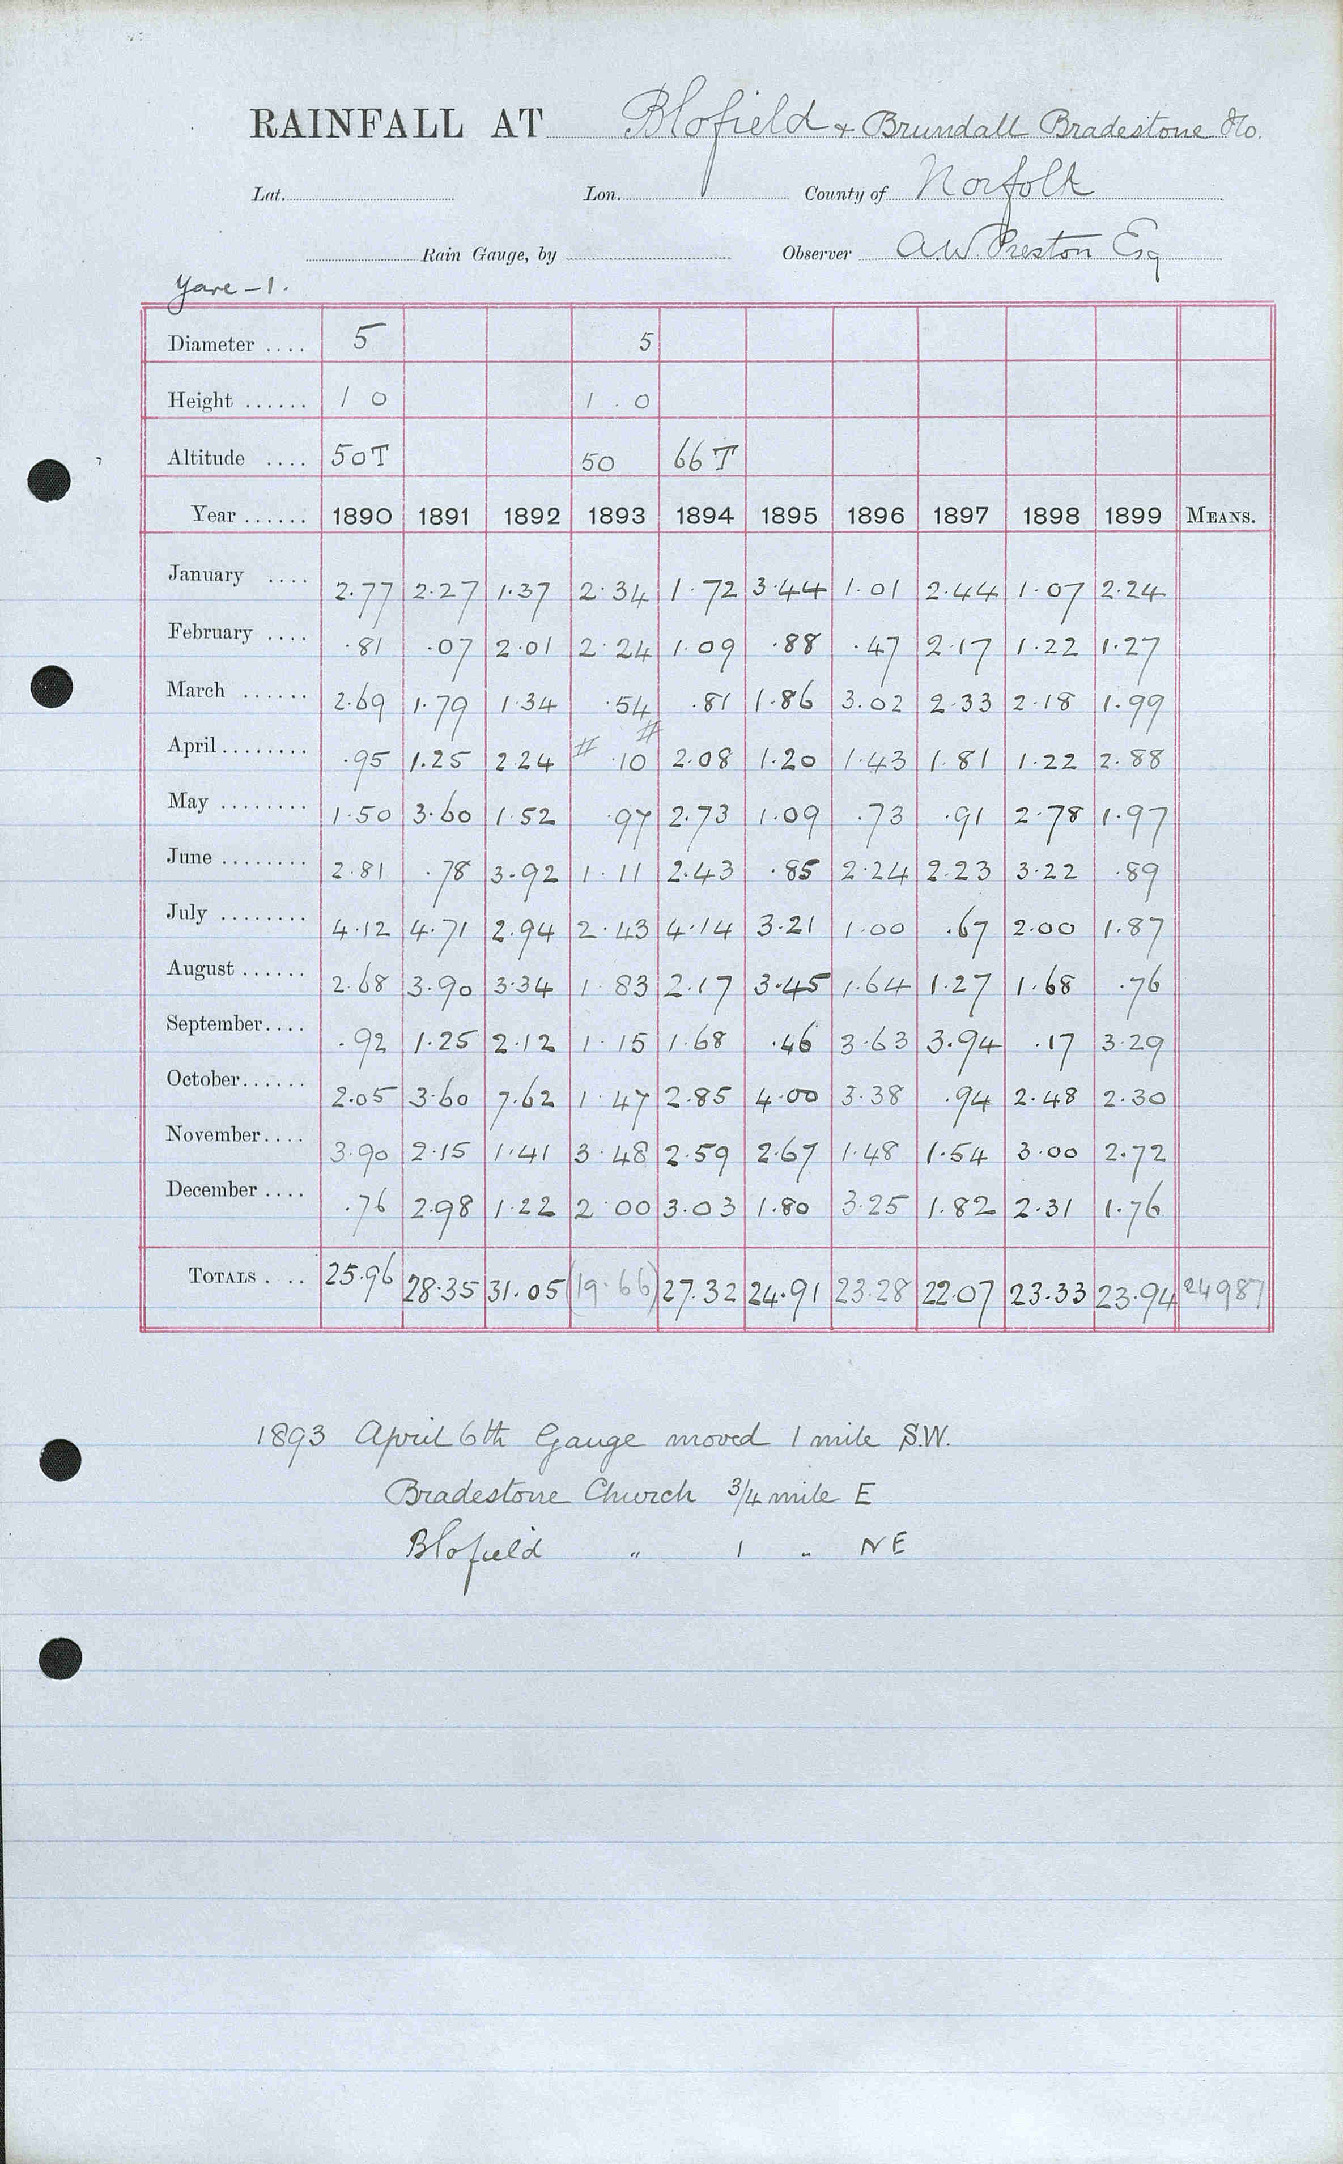 RAINFALL AT Blofield + Brundall Bradestone Ho.
Lat. Lon. County of Norfolk
Rain Gauge, by Observer A.W. Preston Esq
Yare - 1.
Diameter .... 5 5
Height ...... 1 0 1 . 0
Altitude .... 50T 50 66T
Year ...... 1890 1891 1892 1893 1894 1895 1896 1897 1898 1899 MEANS.
January .... 2.77 2.27 1.37 2.34 1.72 3.44 1.01 2.44 1.07 2.24
February .... .81 .07 2.01 2.24 1.09 .88 .47 2.17 1.22 1.27
March ...... 2.69 1.79 1.34 .54 .81 1.86 3.02 2.33 2.18 1.99
April ........ .95 1.25 2.24 # .10 # 2.08 1.20 1.43 1.81 1.22 2.88
May ........ 1.50 3.60 1.52 .97 2.73 1.09 .73 .91 2.78 1.97
June ........ 2.81 .78 3.92 1.11 2.43 .85 2.24 2.23 3.22 .89
July ........ 4.12 4.71 2.94 2.43 4.14 3.21 1.00 .67 2.00 1.87
August ...... 2.68 3.90 3.34 1.83 2.17 3.45 1.64 1.27 1.68 .76
September.... .92 1.25 2.12 1.15 1.68 .46 3.63 3.94 .17 3.29
October...... 2.05 3.60 7.62 1.47 2.85 4.00 3.38 .94 2.48 2.30
November.... 3.90 2.15 1.41 3.48 2.59 2.67 1.48 1.54 3.00 2.72
December .... .76 2.98 1.22 2.00 3.03 1.80 3.25 1.82 2.31 1.76
TOTALS . .. 25.96 28.35 31.05 (19.66) 27.32 24.91 23.28 22.07 23.33 23.94 24987
1893 April 6th Gauge moved 1 mile S.W.
Bradestone Church 3/4 mile E
Blofield " 1 " NE